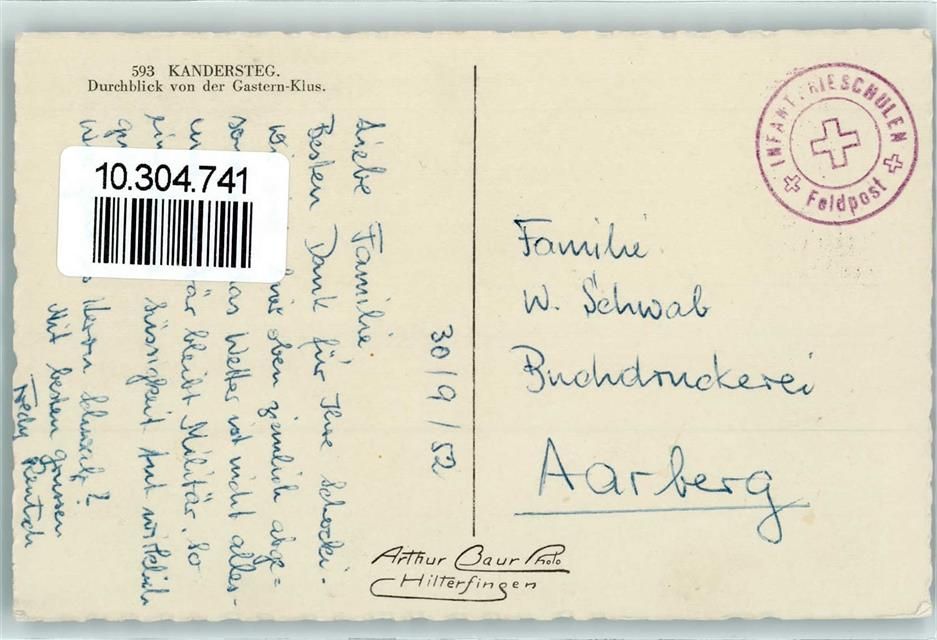 593 KANDERSTEG.
Durchblick von der Gastern-Klus.
10.304.741
30/9/52
Liebe Familie,
Besten Dank für Ihre Schocki.
hier oben ziemlich abge=
das Wetter ist nicht alles-
bleibt Militär. So
Süssigkeit tut wirklich
Herrn Schwab?
Mit besten grüssen
Fredy Rentsch
INFANTERIESCHULEN
Feldpost
Familie
W. Schwab
Buchdruckerei
Aarberg
Arthur Baur Photo
Hilterfingen